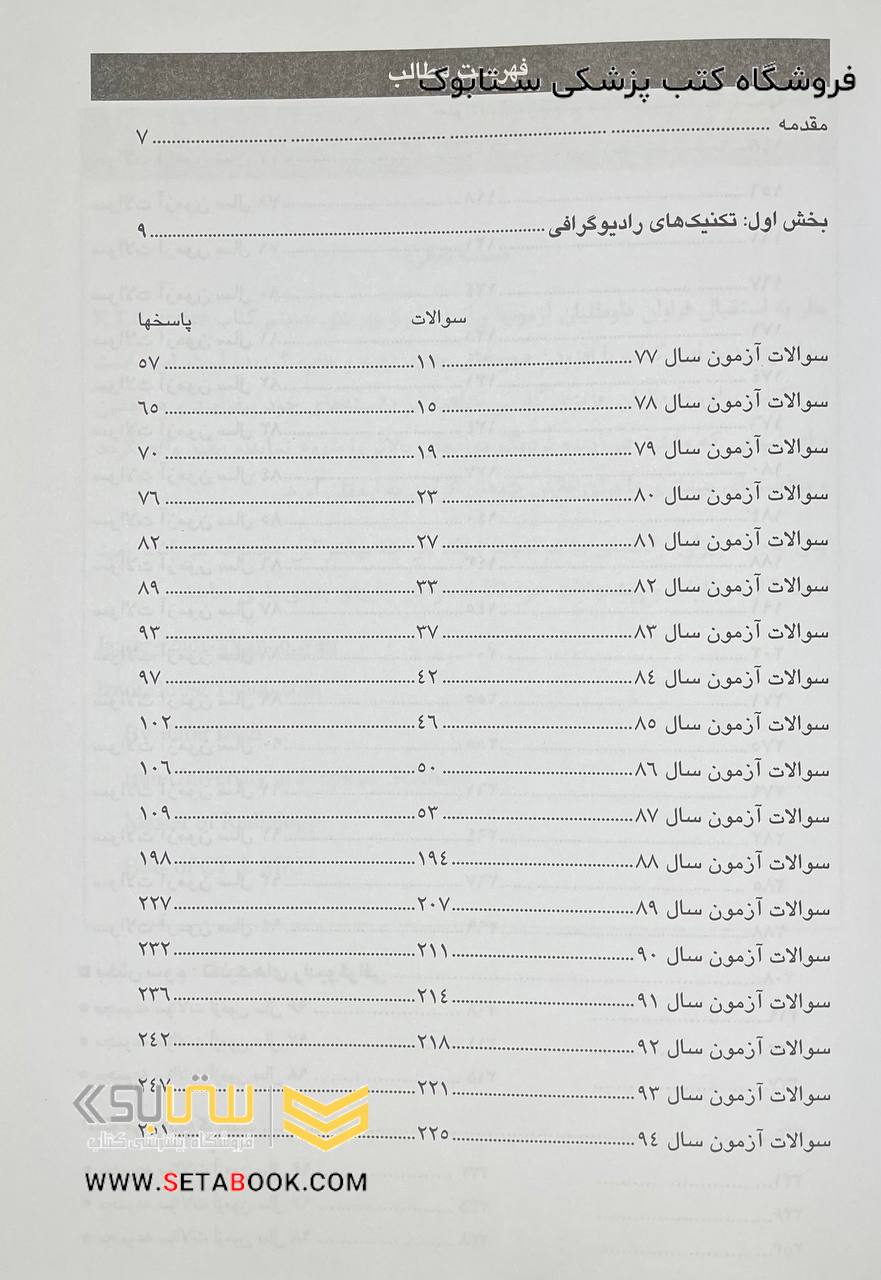 فروشگاه کتب پزشکی ستابوک
فهرست مطالب
مقدمه ................ ۷
بخش اول: تکنیک‌های رادیوگرافی ................ ۹
سوالات پاسخها
سوالات آزمون سال ۷۷ ................ ۱۱ ................ ۵۷
سوالات آزمون سال ۷۸ ................ ۱۵ ................ ٦۵
سوالات آزمون سال ۷۹ ................ ۱۹ ................ ۷۰
سوالات آزمون سال ۸۰ ................ ۲۳ ................ ۷٦
سوالات آزمون سال ۸۱ ................ ۲۷ ................ ۸۲
سوالات آزمون سال ۸۲ ................ ۳۳ ................ ۸۹
سوالات آزمون سال ۸۳ ................ ۳۷ ................ ۹۳
سوالات آزمون سال ۸٤ ................ ٤۲ ................ ۹۷
سوالات آزمون سال ۸۵ ................ ٤٦ ................ ۱۰۲
سوالات آزمون سال ۸٦ ................ ۵۰ ................ ۱۰٦
سوالات آزمون سال ۸۷ ................ ۵۳ ................ ۱۰۹
سوالات آزمون سال ۸۸ ................ ۱۹٤ ................ ۱۹۸
سوالات آزمون سال ۸۹ ................ ۲۰۷ ................ ۲۲۷
سوالات آزمون سال ۹۰ ................ ۲۱۱ ................ ۲۳۲
سوالات آزمون سال ۹۱ ................ ۲۱٤ ................ ۲۳٦
سوالات آزمون سال ۹۲ ................ ۲۱۸ ................ ۲٤۲
سوالات آزمون سال ۹۳ ................ ۲۲۱ ................ ۲٤۷
سوالات آزمون سال ۹٤ ................ ۲۲۵
ستابوک
فروشگاه اینترنتی کتاب
WWW.SETABOOK.COM